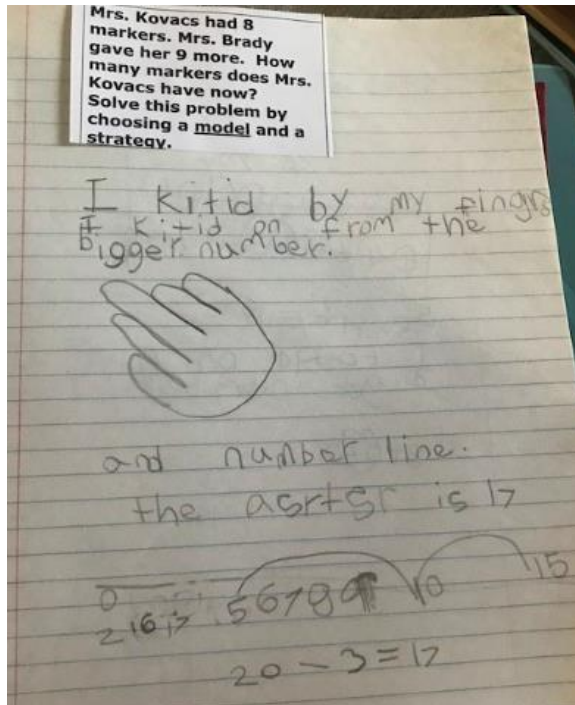 Mrs. Kovacs had 8
markers. Mrs. Brady
gave her 9 more. How
many markers does Mrs.
Kovacs have now?
Solve this problem by
choosing a model and a
strategy.
I kitid by my fingrs
I kitid on from the
bigger number.
and number line.
the asrtsr is 17
0 5 6 7 8 9 10 15
2 16 17
20 - 3 = 17